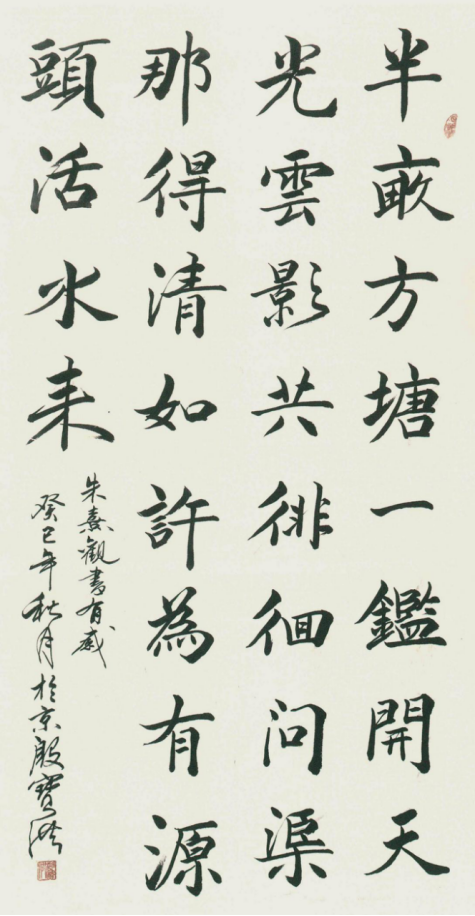 半畝方塘一鑑開天
光雲影共徘徊問渠
那得清如許為有源
頭活水來
朱熹觀書有感
癸巳年秋月於京殷寶洪